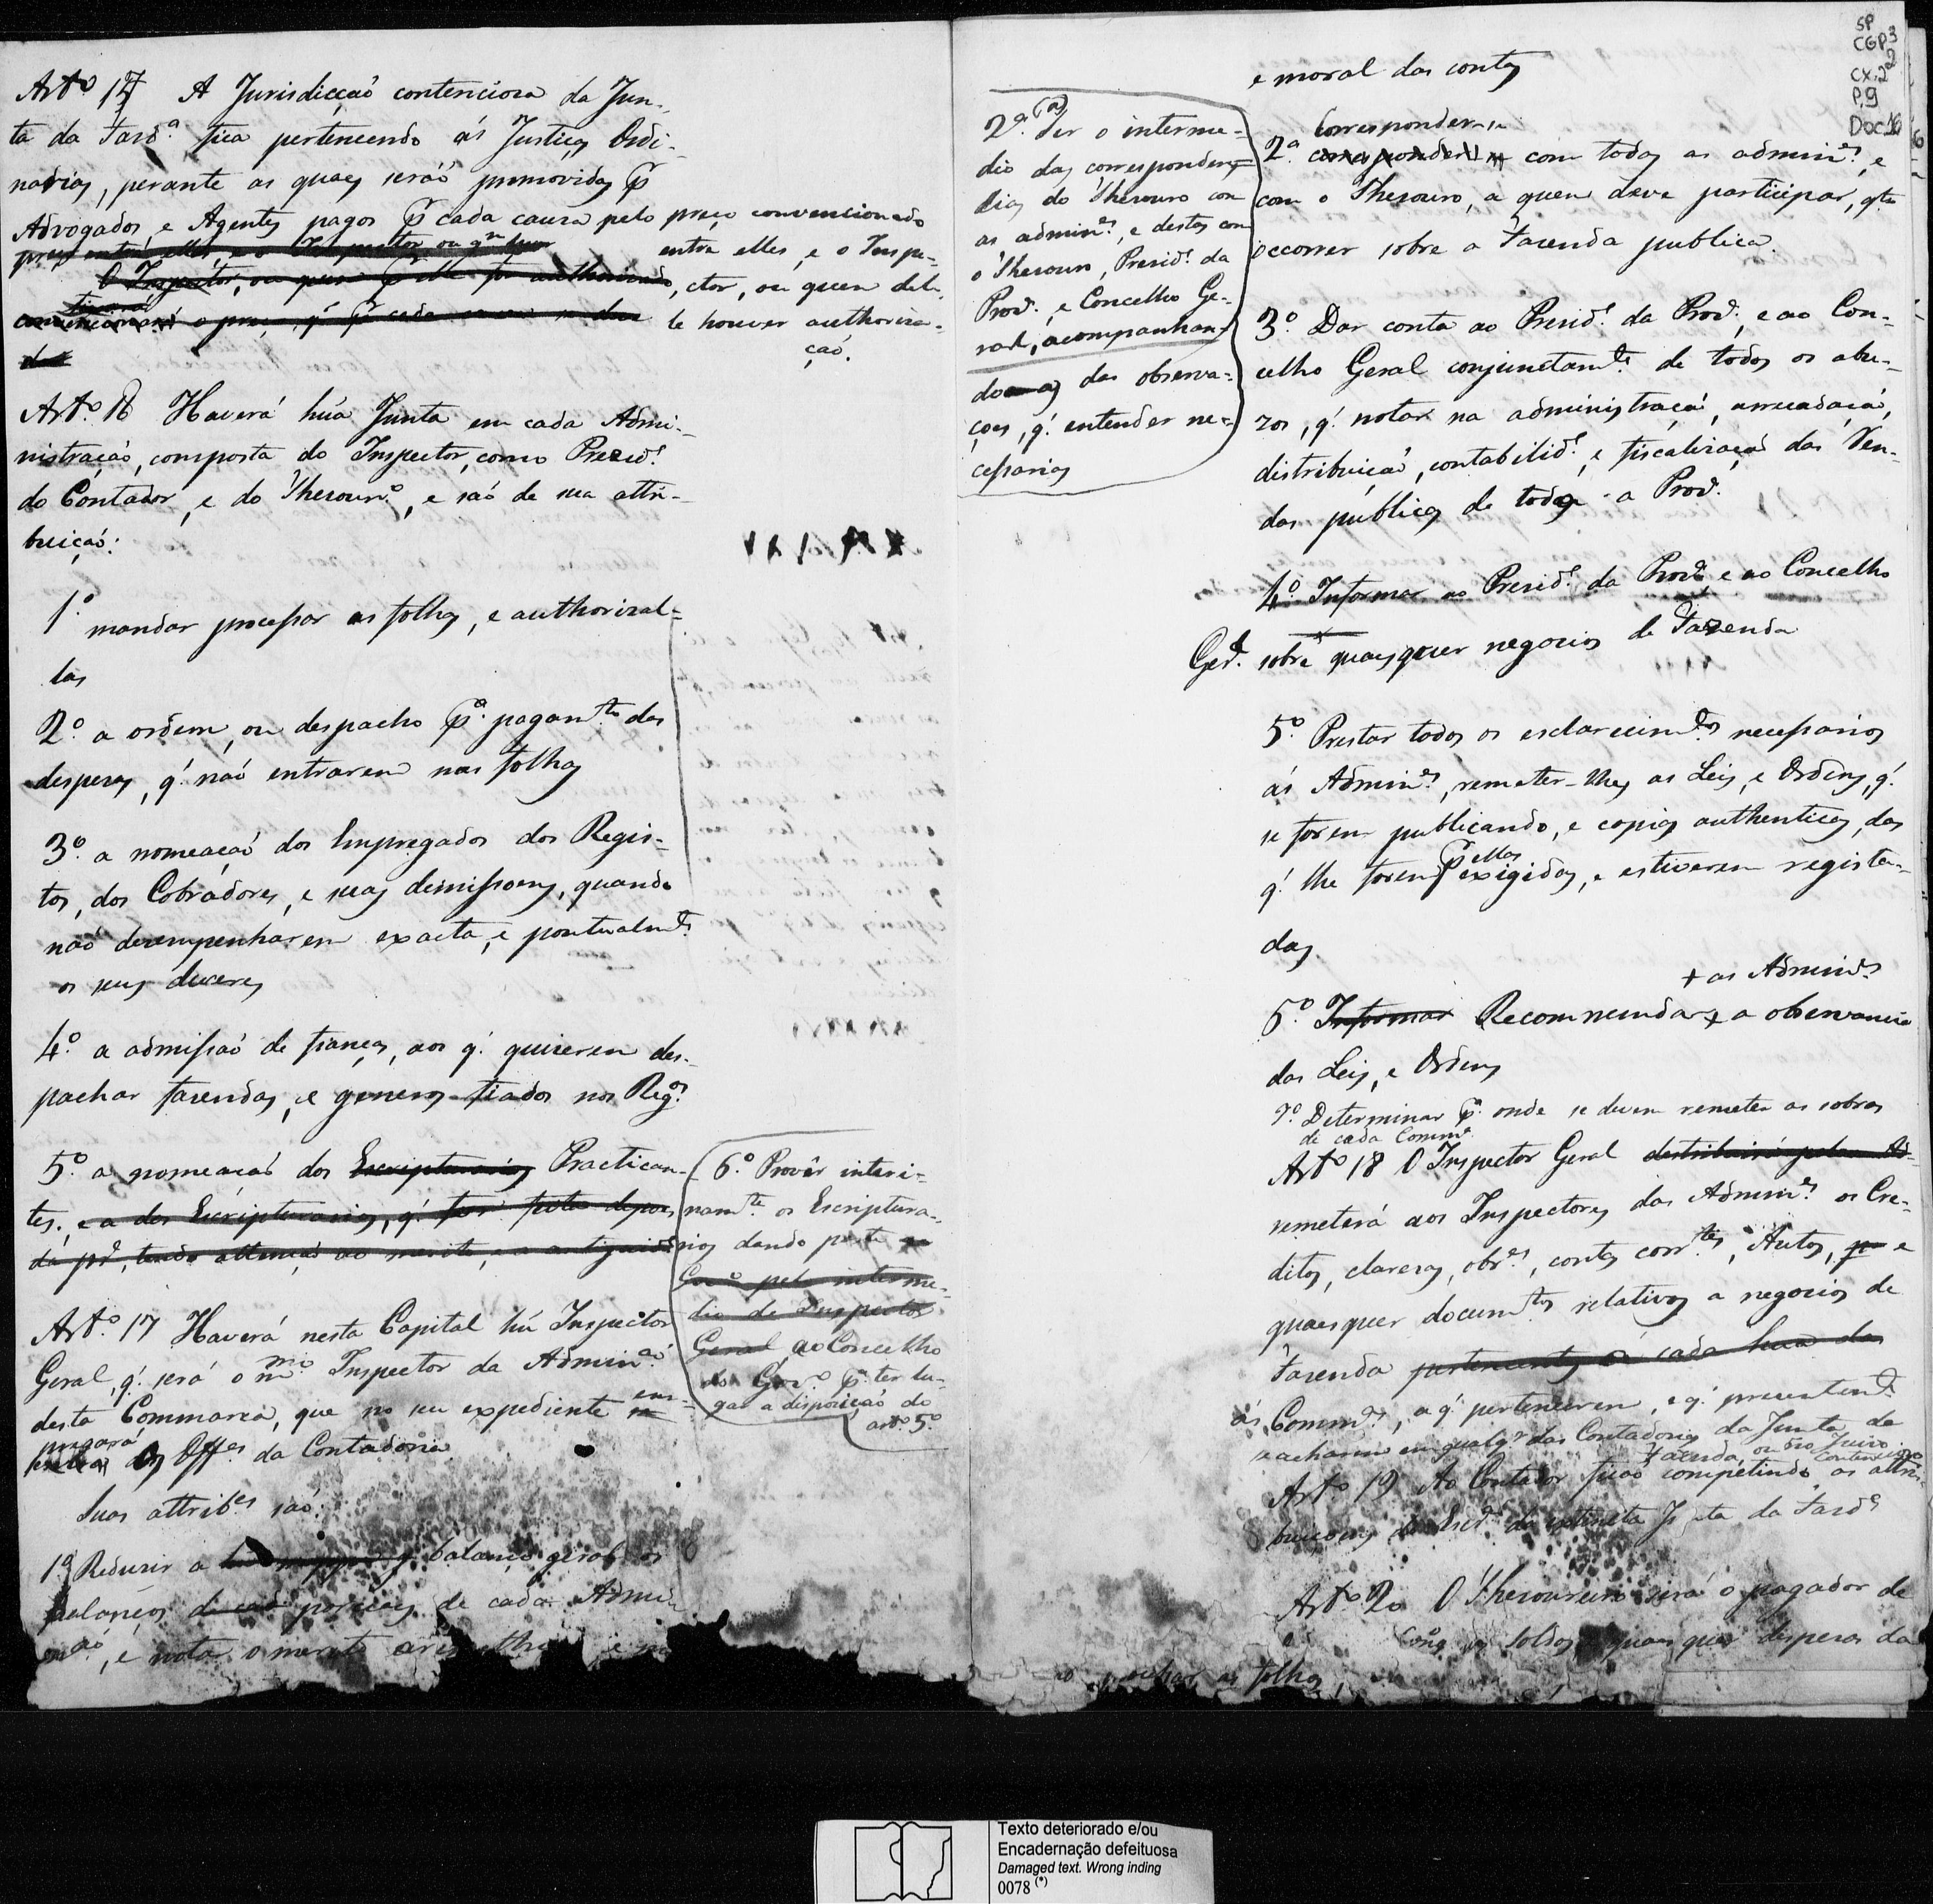 Artº 17 A Jurisdicçaõ contenciosa da Jun-
ta da Fazdª fica pertencendo ás Justiças Ordi-
narias, perante as quaes seráõ promovidas p
Advogados, e Agentes pagos p cada causa pelo preço convencionado
entre elles, e o Inspe-
ctor, ou quem del-
le houver authoriza-
çaõ.
O Inspector, ou quem p elle for authorizado
o preço, q' p cada causa se deve
Artº 16 Haverá hũa Junta em cada Admi-
nistraçaõ, composta do Inspector, como Prezidᵉ
do Contador, e do Thesourº, e saõ de sua attri-
buiçaõ:
1º mandar processar as folhas, e authorizal-
las
2º a ordem, ou despacho pª pagamᵗᵒ das
despezas, q' naõ entrarem nas folhas
3º a nomeaçaõ dos Empregados dos Regis-
tos, dos Cobradores, e suas demissoens, quando
naõ dezempenharem exacta, e pontualmᵗᵉ
os seus deveres
4º a admissaõ de fianças, aos q' quizerem des-
pachar fazendas, e generos fiados nos Regᵒˢ
5º a nomeaçaõ dos Escripturarios Practican-
tes. e a dos Escripturarios, q' for feita depois
da pᵈ, tendo attençaõ ao merito, e a antiguidᵉ
6º Provêr interi-
namᵗᵉ os Escriptura-
rios dando parte ao
Govº pelo interme-
dio do Inspector
Geral ao Concelho
do Govº pª ter lu-
gar a disposiçaõ do
artº 5º
Artº 17 Haverá nesta Capital hũ Inspector
Geral, q' será o mᵐᵒ Inspector da Adminᵃᵒ
desta Commarca, que no seu expediente em-
pregará
os Offᵉˢ da Contadoria
Suas attribᵉˢ saõ:
1º Reduzir a balanço geral os
balanços parciaes de cada Admi-
e notar o merito arithm
e moral das contas
2ª (a) Ser o interme-
dio das corresponden-
cias do Thesouro com
as adminᵉˢ, e destas com
o Thesouro, Presidᵉ da
Provª, e Concelho Ge-
ral, acompanhan-
do as das observa-
çoes, q' entender ne-
cessarias
Corresponder-se
2ª corresponder-se com todas as adminᵉˢ, e
com o Thesouro, a quem deve participar, qᵗᵒ
occorrer sobre a Fazenda publica.
3º Dar conta ao Presidᵉ da Provª, e ao Con-
celho Geral conjunctamᵗᵉ de todos os abu-
zos, q' notar na administraçaõ, arrecadaçaõ,
distribuiçaõ, contabilidᵉ, e fiscalizaçaõ das Ren-
das publicas de toda a Provª
4º Informar ao Presidᵉ da Provª e ao Concelho
Gerˡ sobre quaesquer negocios de Fazenda
5º Prestar todos os esclarecimᵗᵒˢ necessarios
ás Adminᵉˢ, remeter-lhes as Leis, e Ordens, q'
se forem publicando, e copias authenticas, das
q' lhe forem p ellas exigidas, e estiverem regista-
das.
+ as Adminᵉˢ
6º Informar Recommendar + a observancia
das Leis, e Ordens
7º Determinar pª onde se devem remeter as sobras
de cada Commª
Artº 18 O Inspector Geral destribuirá pelas Ad-
remeterá aos Inspectores das Adminᵉˢ os Cre-
ditos, clarezas, obrᵉˢ, contas corrᵗᵉˢ, Autos, e
quaesquer documᵗᵒˢ relativos a negocios de
Fazenda pertencentes á cada hũa das
ás Commᵃˢ, a q' pertencerem, e q' prezentemᵗᵉ
se acharem em qualqʳ das Contadorias da Junta de
Fazenda, ou do Juizo
Contencioso
Artº 19 Ao Contador ficaõ competindo as attri-
buiçoens do Escrᵐ da extincta Junta da Fazdª
Artº 20 O Thesoureiro será o pagador de
soldos, e quaesquer despezas da
as folhas,
SP
CGP3
CX.2
P.9
Doc.16
Texto deteriorado e/ou
Encadernação defeituosa
Damaged text. Wrong inding
0078 (*)